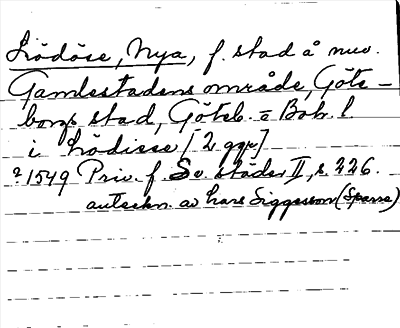 Lödöse, Nya, f. stad å nuv.
Gamlestadens område, Göte-
borgs stad, Göteb. o Boh. l.
i lödisse [2 ggr]
? 1549 Priv. f. Sv. städer II, s. 226.
anteckn. av Lars Siggesson (Sparre)